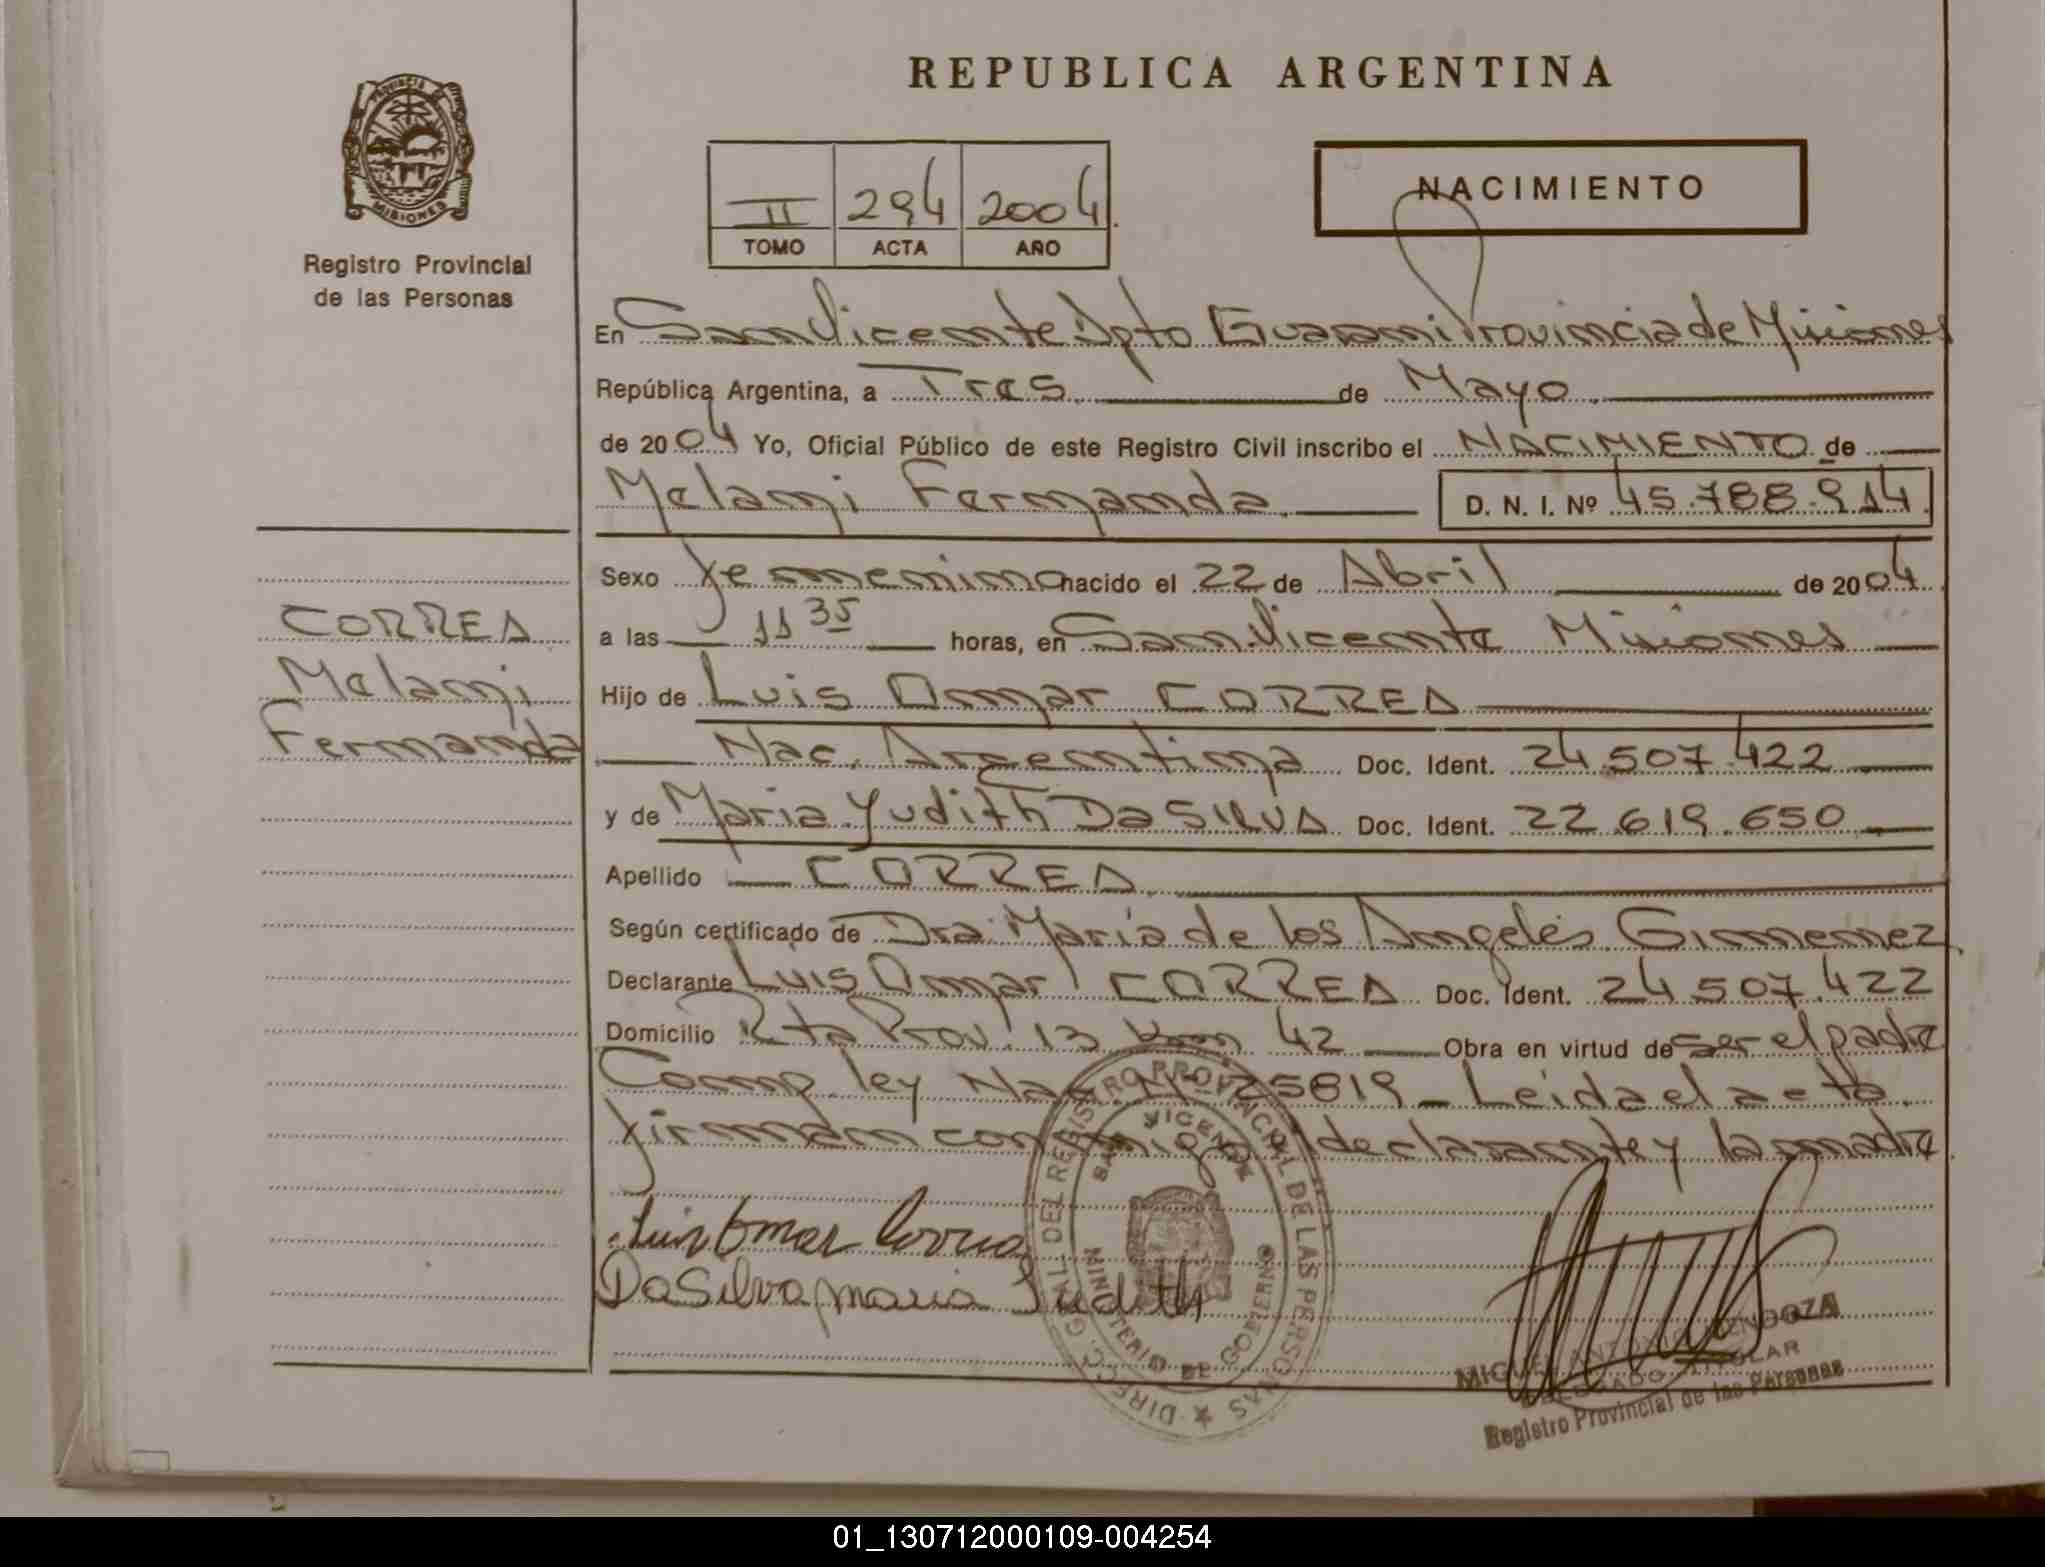 REPUBLICA ARGENTINA
PROVINCIA DE
MISIONES
Registro Provincial
de las Personas
II 294 2004
TOMO ACTA AÑO
NACIMIENTO
En San Vicente Dpto Guarani Provincia de Misiones
República Argentina, a Tres de Mayo
de 2004 Yo, Oficial Público de este Registro Civil inscribo el NACIMIENTO de
Melani Fernanda D. N. I. Nº 45.788.914
Sexo Femenino nacido el 22 de Abril de 2004
a las 11 35 horas, en San Vicente Misiones
Hijo de Luis Omar CORREA
Nac. Argentina Doc. Ident. 24.507.422
y de Maria Yudith Da SILVA Doc. Ident. 22.619.650
Apellido CORREA
Según certificado de Dra. María de los Angeles Gimenez
Declarante Luis Omar CORREA Doc. Ident. 24.507.422
Domicilio Rta Prov. 13 Km 42 Obra en virtud de ser el padre
Comp. ley Nac. Nº 25819 - Leida el acta
firman conmigo el declarante y la madre
CORREA
Melani
Fernanda
Luis Omar Correa
Da Silva maria Judith
DIRECC. GRAL. DEL REGISTRO PROVINCIAL DE LAS PERSONAS
SAN VICENTE
MINISTERIO DE GOBIERNO
MIGUEL ANTONIO MENDOZA
DELEGADO TITULAR
Registro Provincial de las Personas
01_130712000109-004254